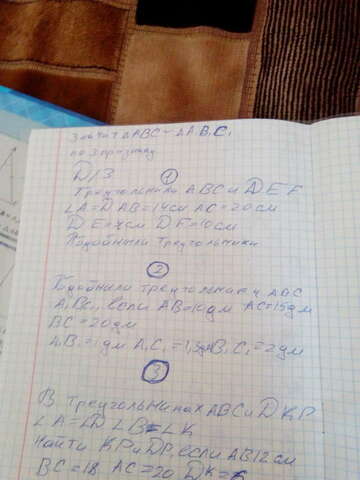 Значит ΔABC ~ ΔA₁B₁C₁
по 3 признаку
D/З
①
Треугольники ABC и DEF
∠A=∠D AB=14см AC=20см
DE=7см DF=10см
Подобны ли треугольники
②
Подобны ли треугольники ABC
A₁B₁C₁, если AB=10дм AC=15дм
BC=20дм
A₁B₁=1дм A₁C₁=1,5дм B₁C₁=2дм
③
В треугольниках ABC и DKP
∠A=∠D ∠B=∠K
Найти KP и DP, если AB 12см
BC=18 AC=20 DK=6